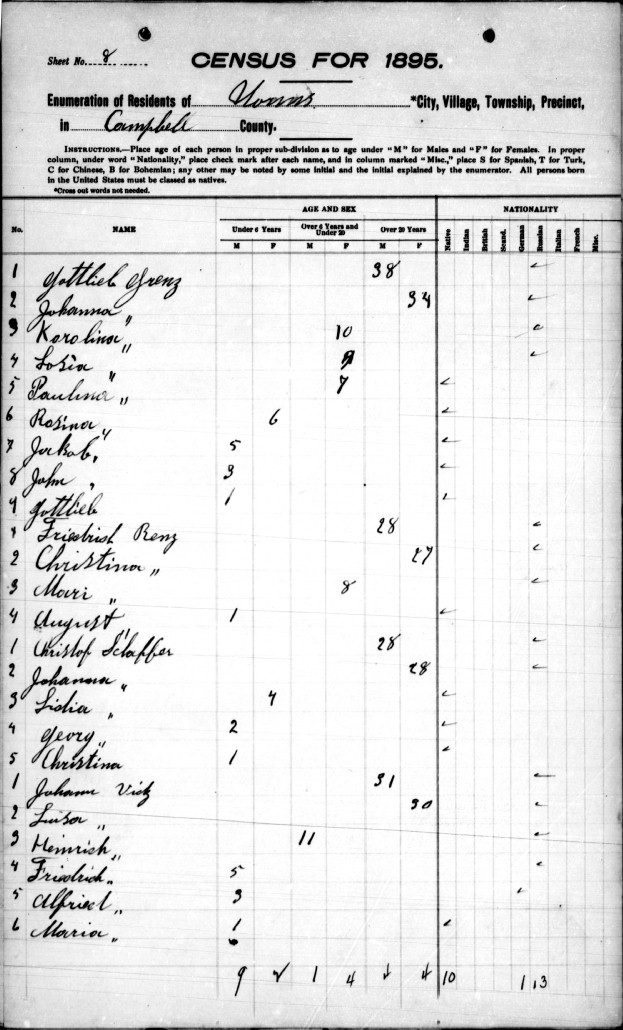 Sheet No. 8
CENSUS FOR 1895.
Enumeration of Residents of *City, Village, Township, Precinct,
in Campbell County.
INSTRUCTIONS.—Place age of each person in proper sub-division as to age under "M" for Males and "F" for Females. In proper
column, under word "Nationality," place check mark after each name, and in column marked "Misc.," place S for Spanish, T for Turk,
C for Chinese, B for Bohemian; any other may be noted by some initial and the initial explained by the enumerator. All persons born
in the United States must be classed as natives.
*Cross out words not needed.
AGE AND SEX NATIONALITY
No. NAME Under 6 Years Over 6 Years and Under 20 Over 20 Years Native Indian British Scand. German Russian Italian French Misc.
M F M F M F
1 Gottlieb Grenz 38 ✓
2 Johanna " 34 ✓
3 Karolina " 10 ✓
4 " ✓
5 Paulina " 7 ✓
6 Rosina " 6 ✓
7 Jackob " 5 ✓
8 John " 3 ✓
9 Gottlieb 1 ✓
1 Friedrich Renz 28 ✓
2 Christina " 27 ✓
3 Mari " 8 ✓
4 August " 1 ✓
1 Christof Schaffer 28 ✓
2 Johanna " 28 ✓
3 Lidia " 4 ✓
4 Georg " 2 ✓
5 Christina 1 ✓
1 Johann Vick 31 ✓
2 Luisa " 30 ✓
3 Heinrich " 11 ✓
4 Friedrich " 5 ✓
5 Alfried " 3 ✓
6 Maria " 1 ✓
9 2 1 4 4 4 10 1 13